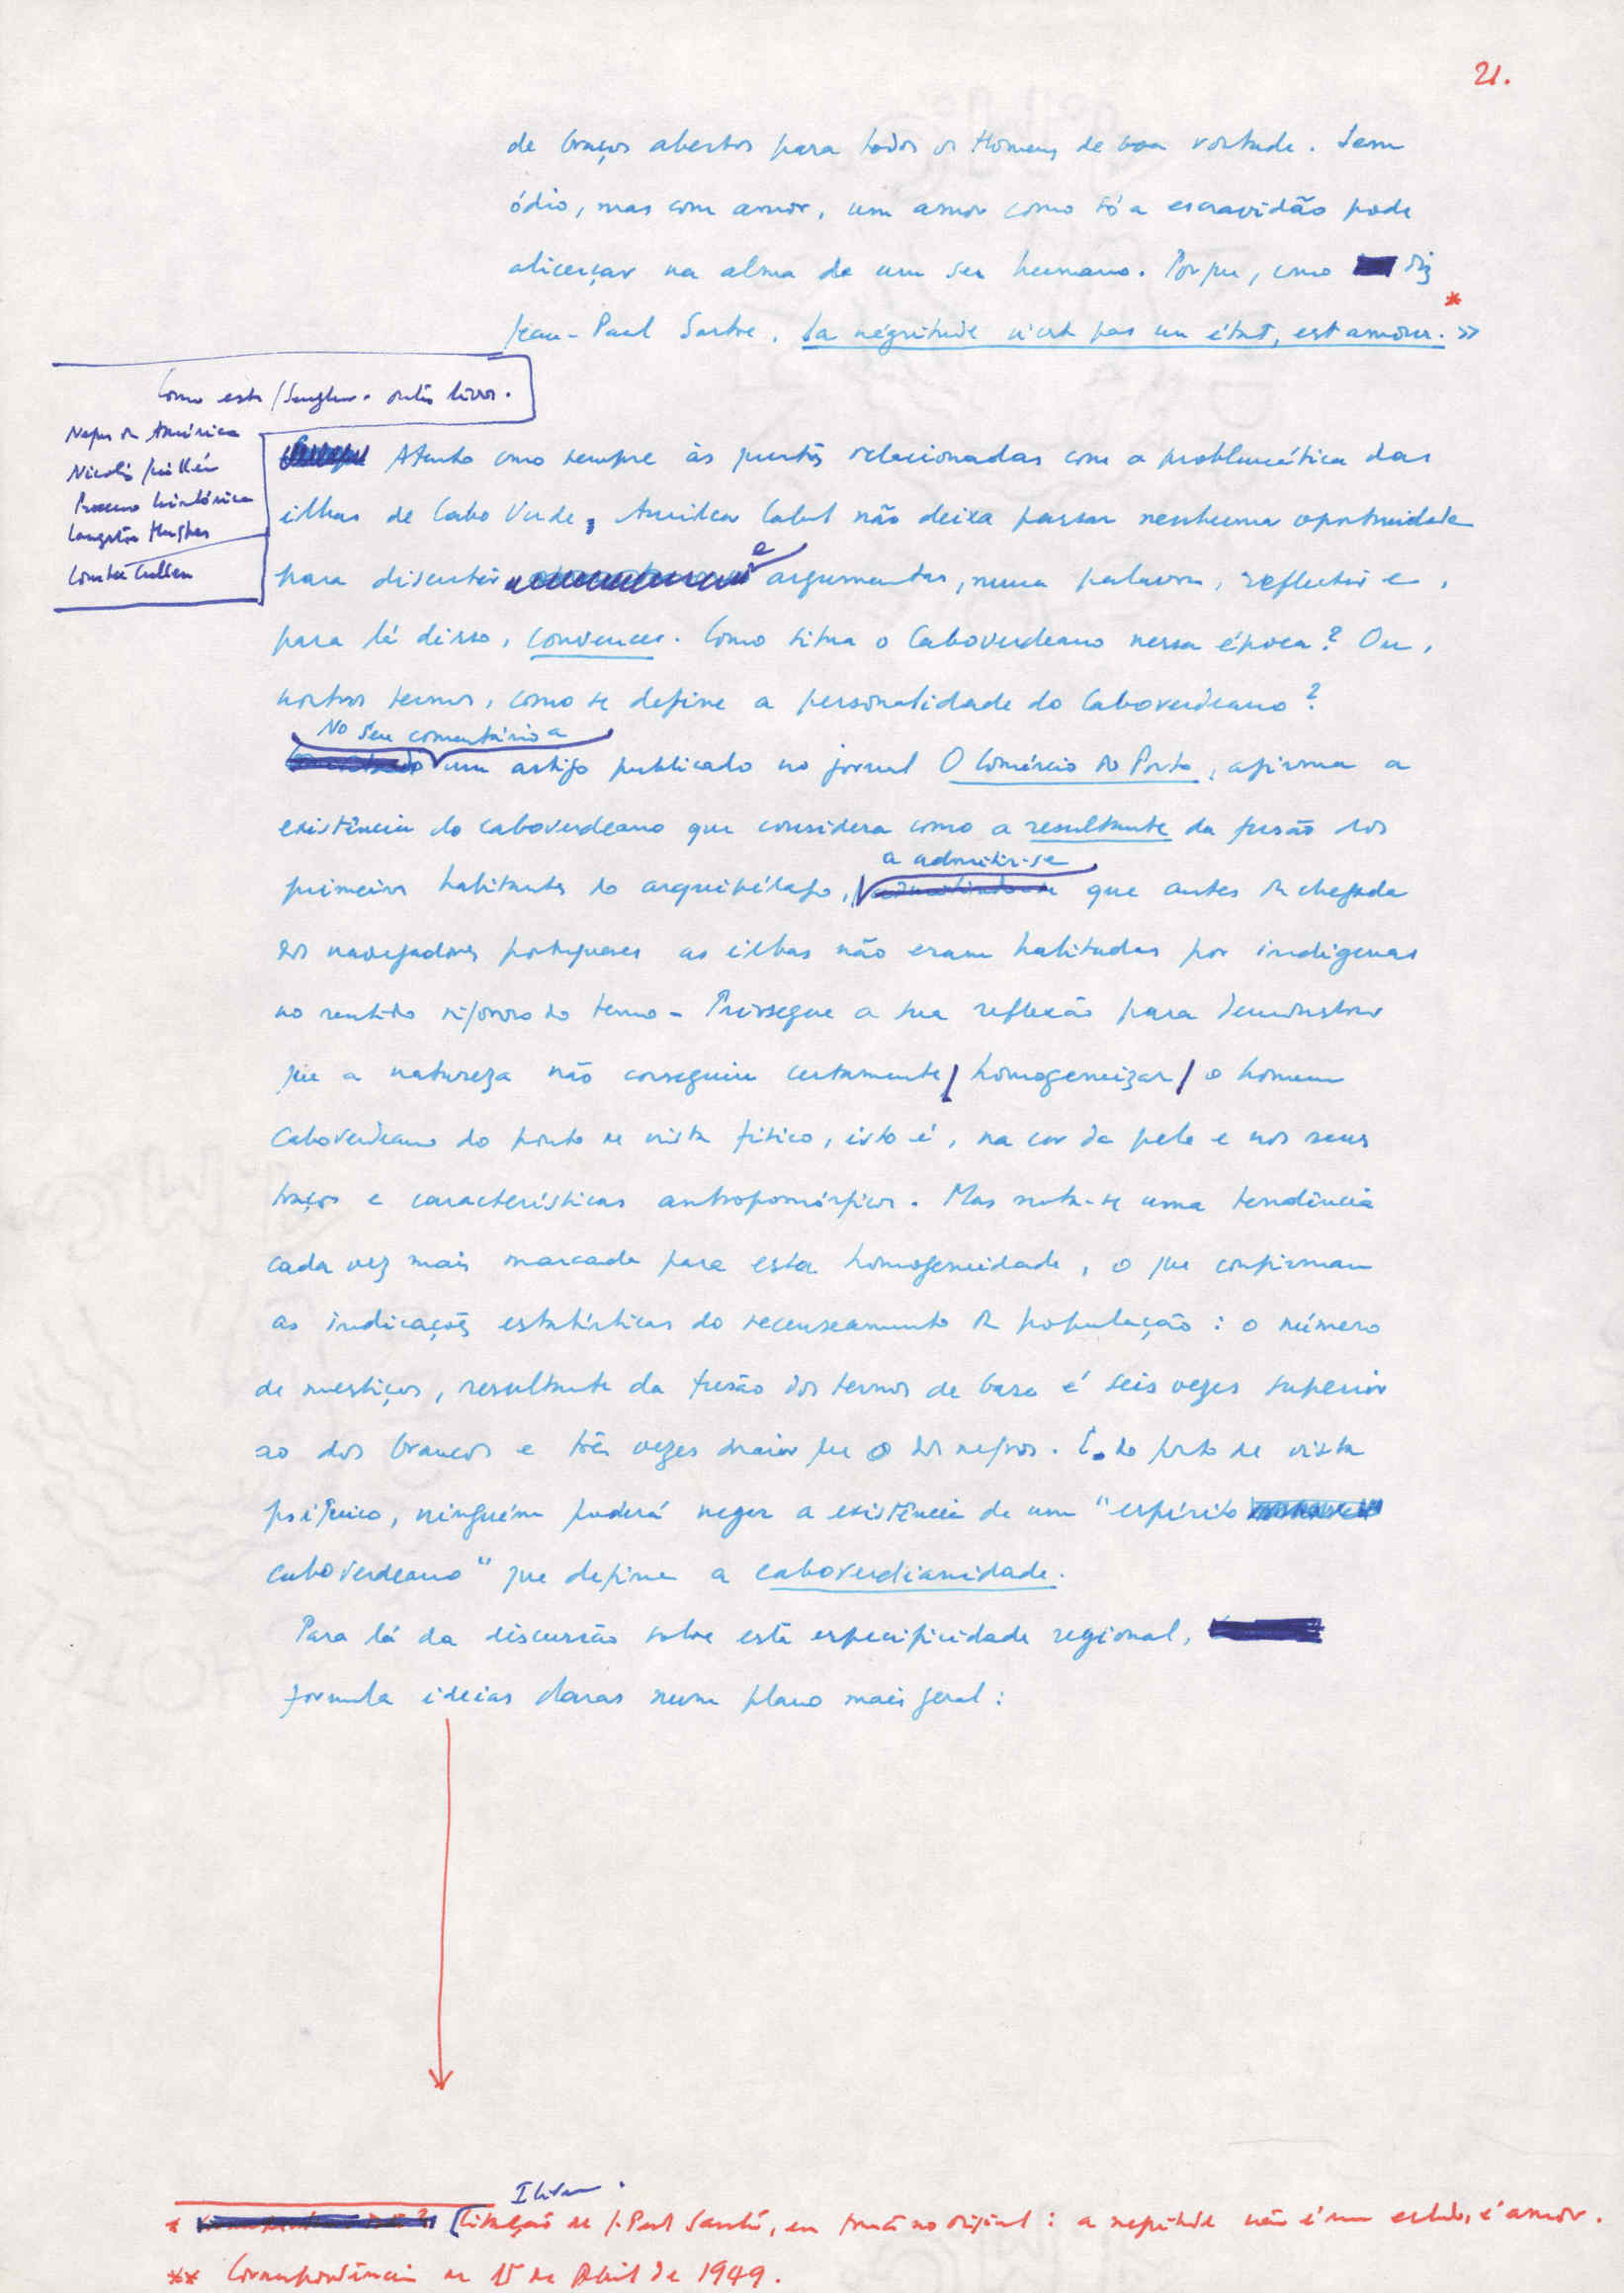 21.
de braços abertos para todos os Homens de boa vontade. Sem
ódio, mas com amor, um amor como só a escravidão pode
alicerçar na alma de um ser humano. Porque, como diz
Jean-Paul Sartre, la négritude n'est pas un état, est amour. * »
Como esta / Senghor. outros livros.
Negros da América
Nicolás Guillén
Processo histórico
Langston Hughes
Countee Cullen
Atento como sempre às questões relacionadas com a problemática das
ilhas de Cabo Verde, Amílcar Cabral não deixa passar nenhuma oportunidade
para discutir e argumentar, numa palavra, reflectir e,
para lá disso, convencer. Como situa o Caboverdeano nessa época? Ou,
noutros termos, como se define a personalidade do Caboverdeano?
No seu comentário a
um artigo publicado no jornal O Comércio do Porto, afirma a
existência do caboverdeano que considera como a resultante da fusão dos
a admitir-se
primeiros habitantes do arquipélago, que antes da chegada
dos navegadores portugueses as ilhas não eram habitadas por indígenas
no sentido rigoroso do termo - Prossegue a sua reflexão para demonstrar
que a natureza não conseguiu certamente / homogeneizar / o homem
Caboverdeano do ponto de vista físico, isto é, na cor da pele e nos seus
traços e características antropomórficos. Mas nota-se uma tendência
cada vez mais marcada para esta homogeneidade, o que confirmam
as indicações estatísticas do recenseamento da população: o número
de mestiços, resultante da fusão dos termos de base é seis vezes superior
ao dos brancos e três vezes maior que o dos negros. E. do ponto de vista
psíquico, ninguém poderá negar a existência de um "espírito
caboverdeano" que define a caboverdianidade.
Para lá da discussão sobre esta especificidade regional,
formula ideias claras num plano mais geral:
* Citação de J. Paul Sartre, em francês no original: a negritude não é um estado, é amor.
** Correspondência de 15 de Abril de 1949.